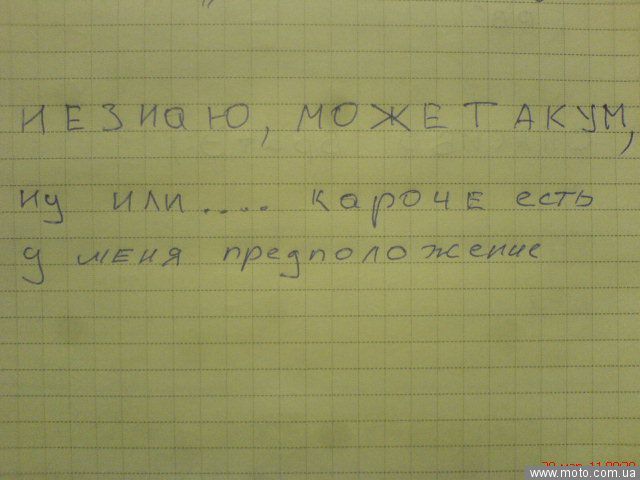 НЕЗНАЮ, МОЖЕТ АКУМ,
ну или.... кароче есть
у меня предположение
www.moto.com.ua